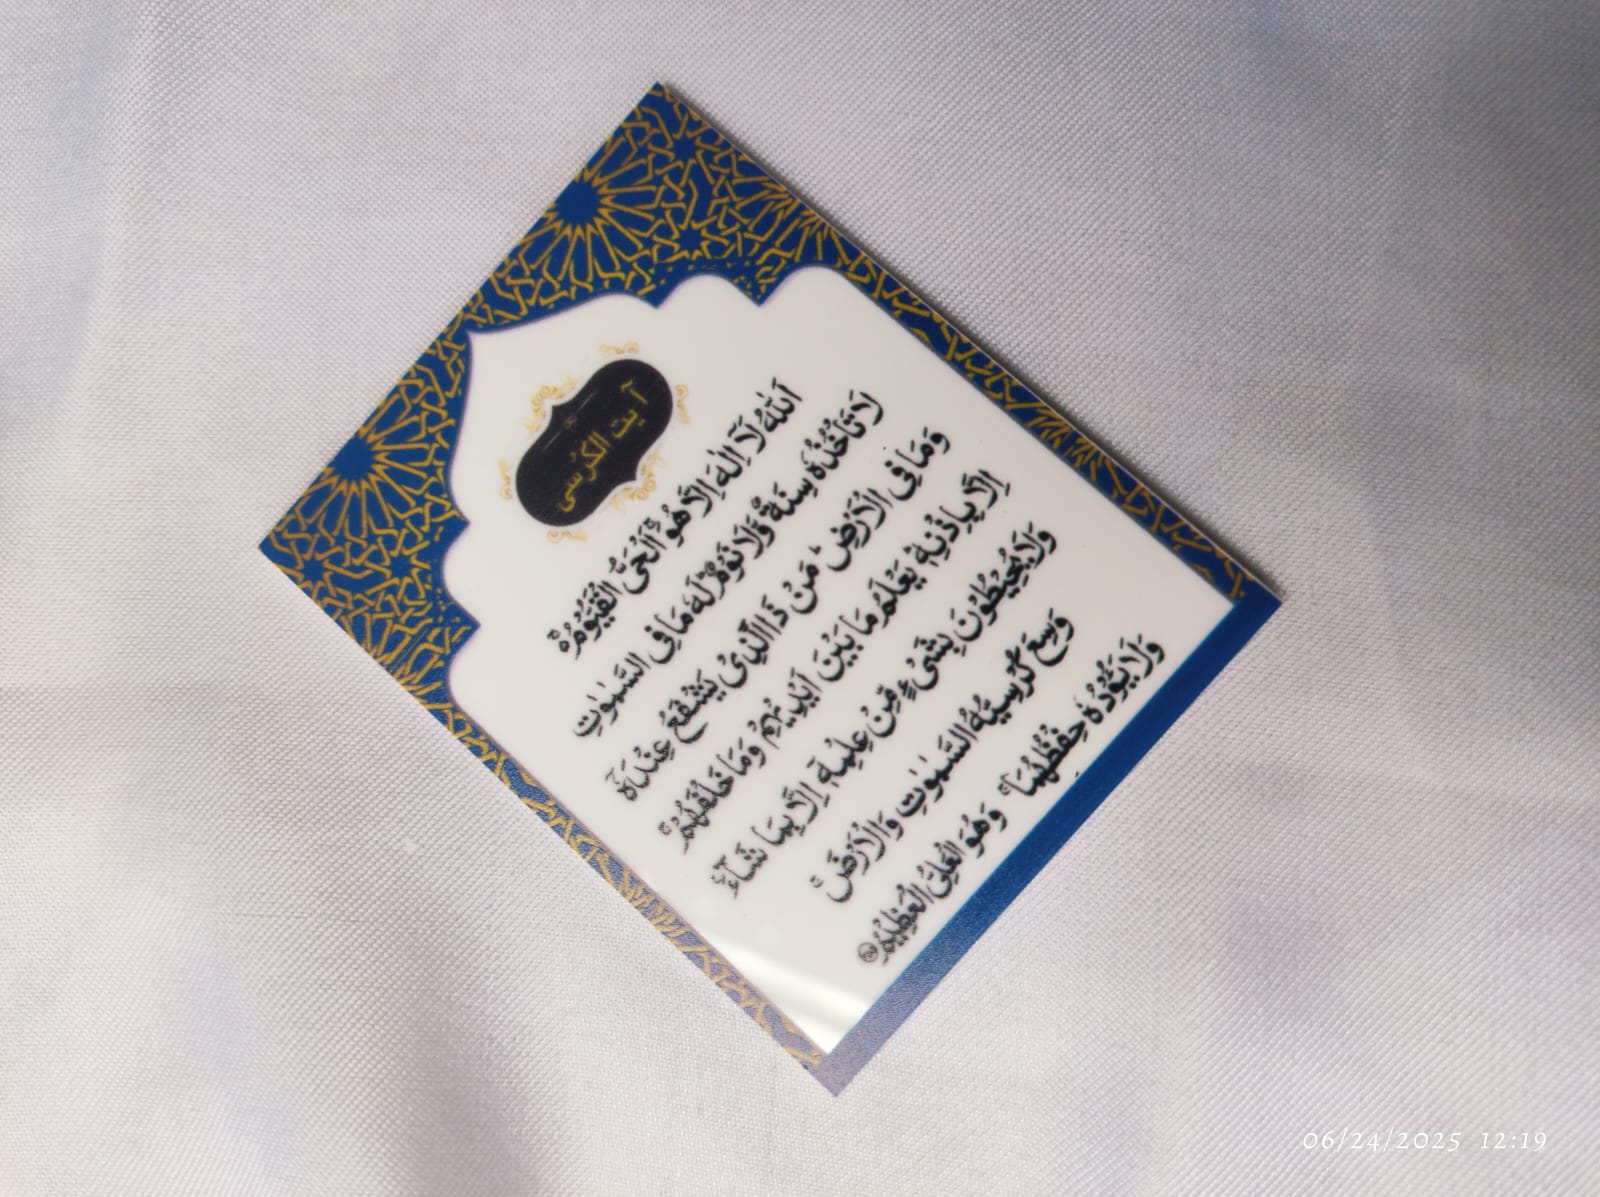 آیت الکرسی
اَللّٰهُ لَاۤ اِلٰهَ اِلَّا هُوَ ۚ اَلْحَیُّ الْقَیُّوْمُ ۚ
لَا تَاْخُذُهٗ سِنَةٌ وَّلَا نَوْمٌ ؕ لَهٗ مَا فِی السَّمٰوٰتِ
وَمَا فِی الْاَرْضِ ؕ مَنْ ذَا الَّذِیْ یَشْفَعُ عِنْدَهٗۤ
اِلَّا بِاِذْنِهٖ ؕ یَعْلَمُ مَا بَیْنَ اَیْدِیْهِمْ وَمَا خَلْفَهُمْ ۚ
وَلَا یُحِیْطُوْنَ بِشَیْءٍ مِّنْ عِلْمِهٖۤ اِلَّا بِمَا شَآءَ ۚ
وَسِعَ كُرْسِیُّهُ السَّمٰوٰتِ وَالْاَرْضَ ۚ
وَلَا یَـُٔوْدُهٗ حِفْظُهُمَا ۚ وَهُوَ الْعَلِیُّ الْعَظِیْمُ
06/24/2025 12:19